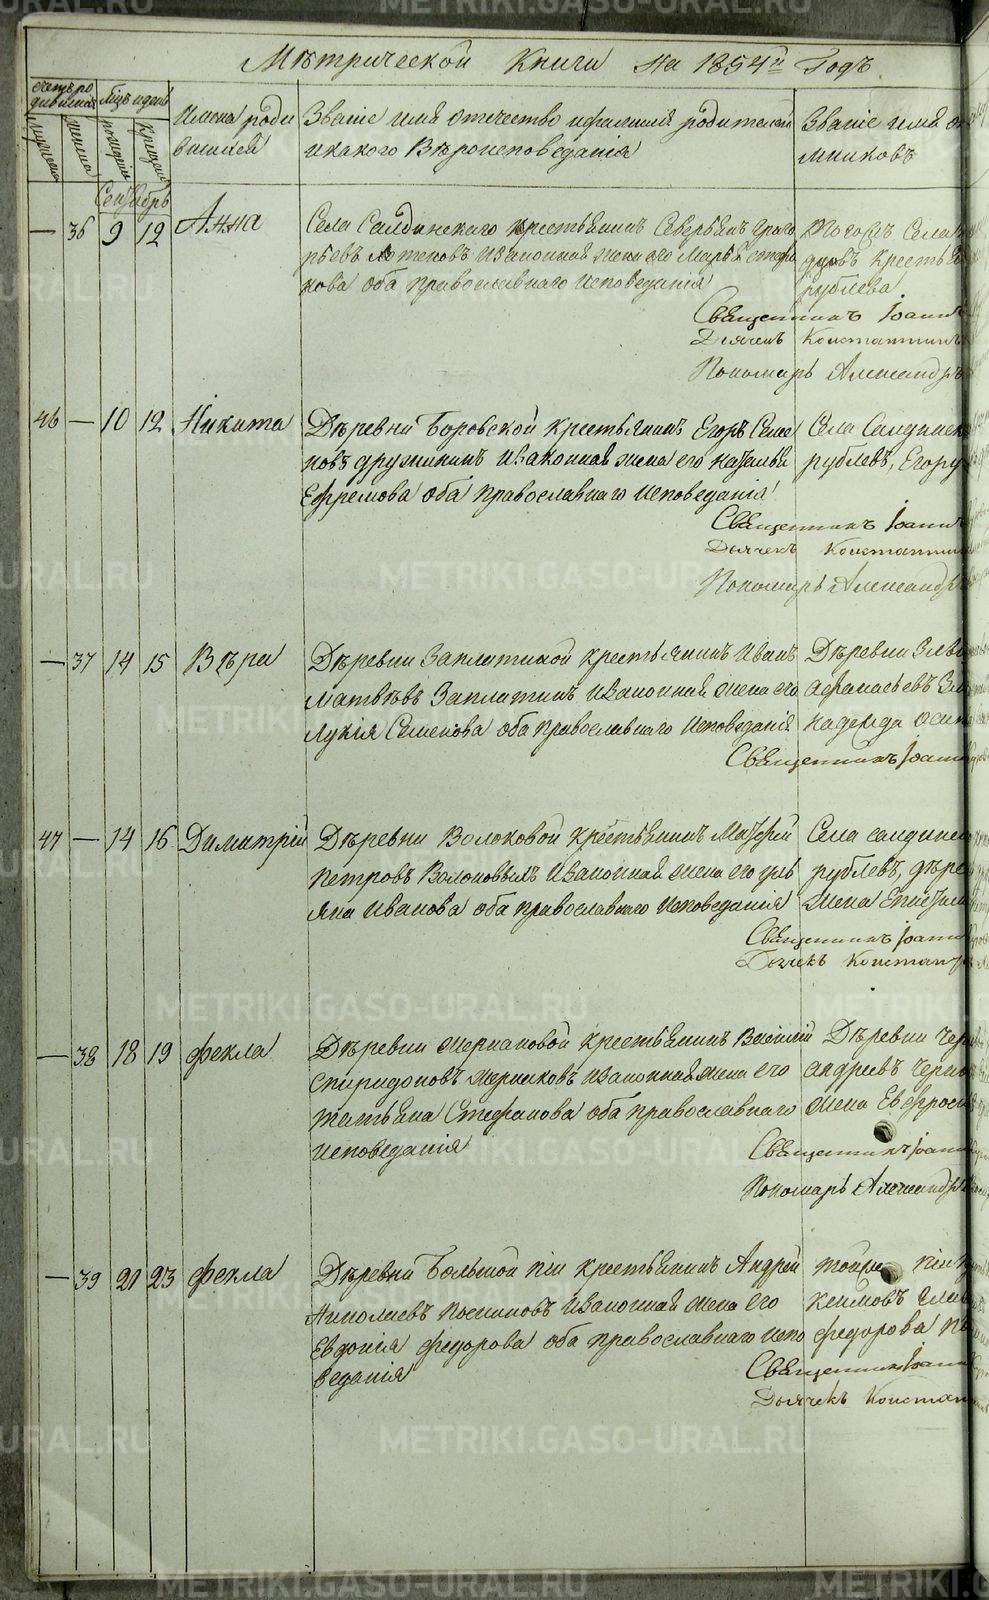 Мѣтрической Книги на 1854й Годъ
счетъ родившихся
Мѣцъ и день
Имена роди
вшихся
Званіе имя отечество и фамилія родителей
и какого Вѣроисповеданія
Званіе имя о
мниковъ
мужеска
женска
рожденія
крещенія
Сентябрь
— 36 9 12 Анна
Села Салдинскаго крестьянинъ Северьянъ Григо
рьевъ и законная жена его Марья
кова оба православнаго исповеданія
Тогожъ Села
крестья
рублева
Священникъ Іоанн
Дьячекъ Константинъ
Пономарь Александръ
46 — 10 12 Никита
Дѣревни Боровской крестьянинъ Егоръ Семе
новъ дружининъ и законная жена его Наталья
Ефремова оба православнаго исповеданія
Села Салдинск
рублевъ, Егору
Священникъ Іоанн
Дьячекъ Константин
Пономарь Александр
— 37 14 15 Вѣра
Дѣревни Заплатиной крестьянинъ Иванъ
Матвѣевъ Заплатинъ и законная жена его
Лукія Семенова оба православнаго исповеданія
Дѣревни
Афанасьевъ
надежда Осип
Священникъ Іоанн
47 — 14 16 Димитрій
Дѣревни Волоковой крестьянинъ Матфей
Петровъ Волоковыхъ и законная жена его уль
яна Иванова оба православнаго исповеданія
Села салдинс
рублевъ, дѣре
жена
Священникъ Іоанн
Дьячекъ Констант
— 38 18 19 фекла
Дѣревни Мерикановой крестьянинъ Василій
спиридоновъ и законная жена его
татьяна Стефанова оба православнаго
исповеданія
Дѣревни Чер
андреевъ
жена Евфрос
Священникъ Іоанн
Пономарь Александръ
— 39 21 23 фекла
Дѣревни Большой піи крестьянинъ Андрей
Николаевъ и законная жена его
Евдокія федорова оба православнаго испо
веданія
тойже піи
кеимовъ
федорова
Священникъ Іоанн
Дьячекъ Константи
METRIKI.GASO-URAL.RU